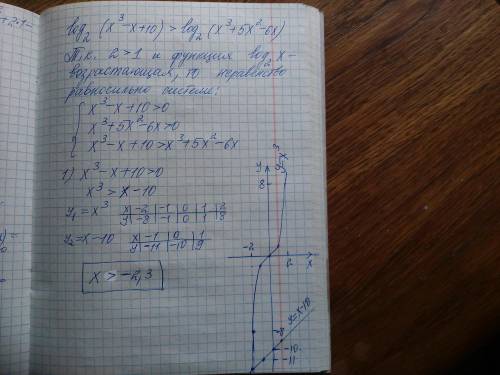 log₂(x³-x+10)>log₂(x³+5x²-6x)
Т.к. 2>1 и функция log₂x-
возрастающая, то неравенство
равносильно системе:
{ x³-x+10>0
x³+5x²-6x>0
x³-x+10>x³+5x²-6x
1) x³-x+10>0
x³>x-10
y₁=x³ x|-2|-1|0|1|2
y|-8|-1|0|1|8
y₂=x-10 x|-1|0|1
y|-11|-10|9
x>-2,3
y
y=x³
8
-2
2
x
-8
y=x-10
-10
-11